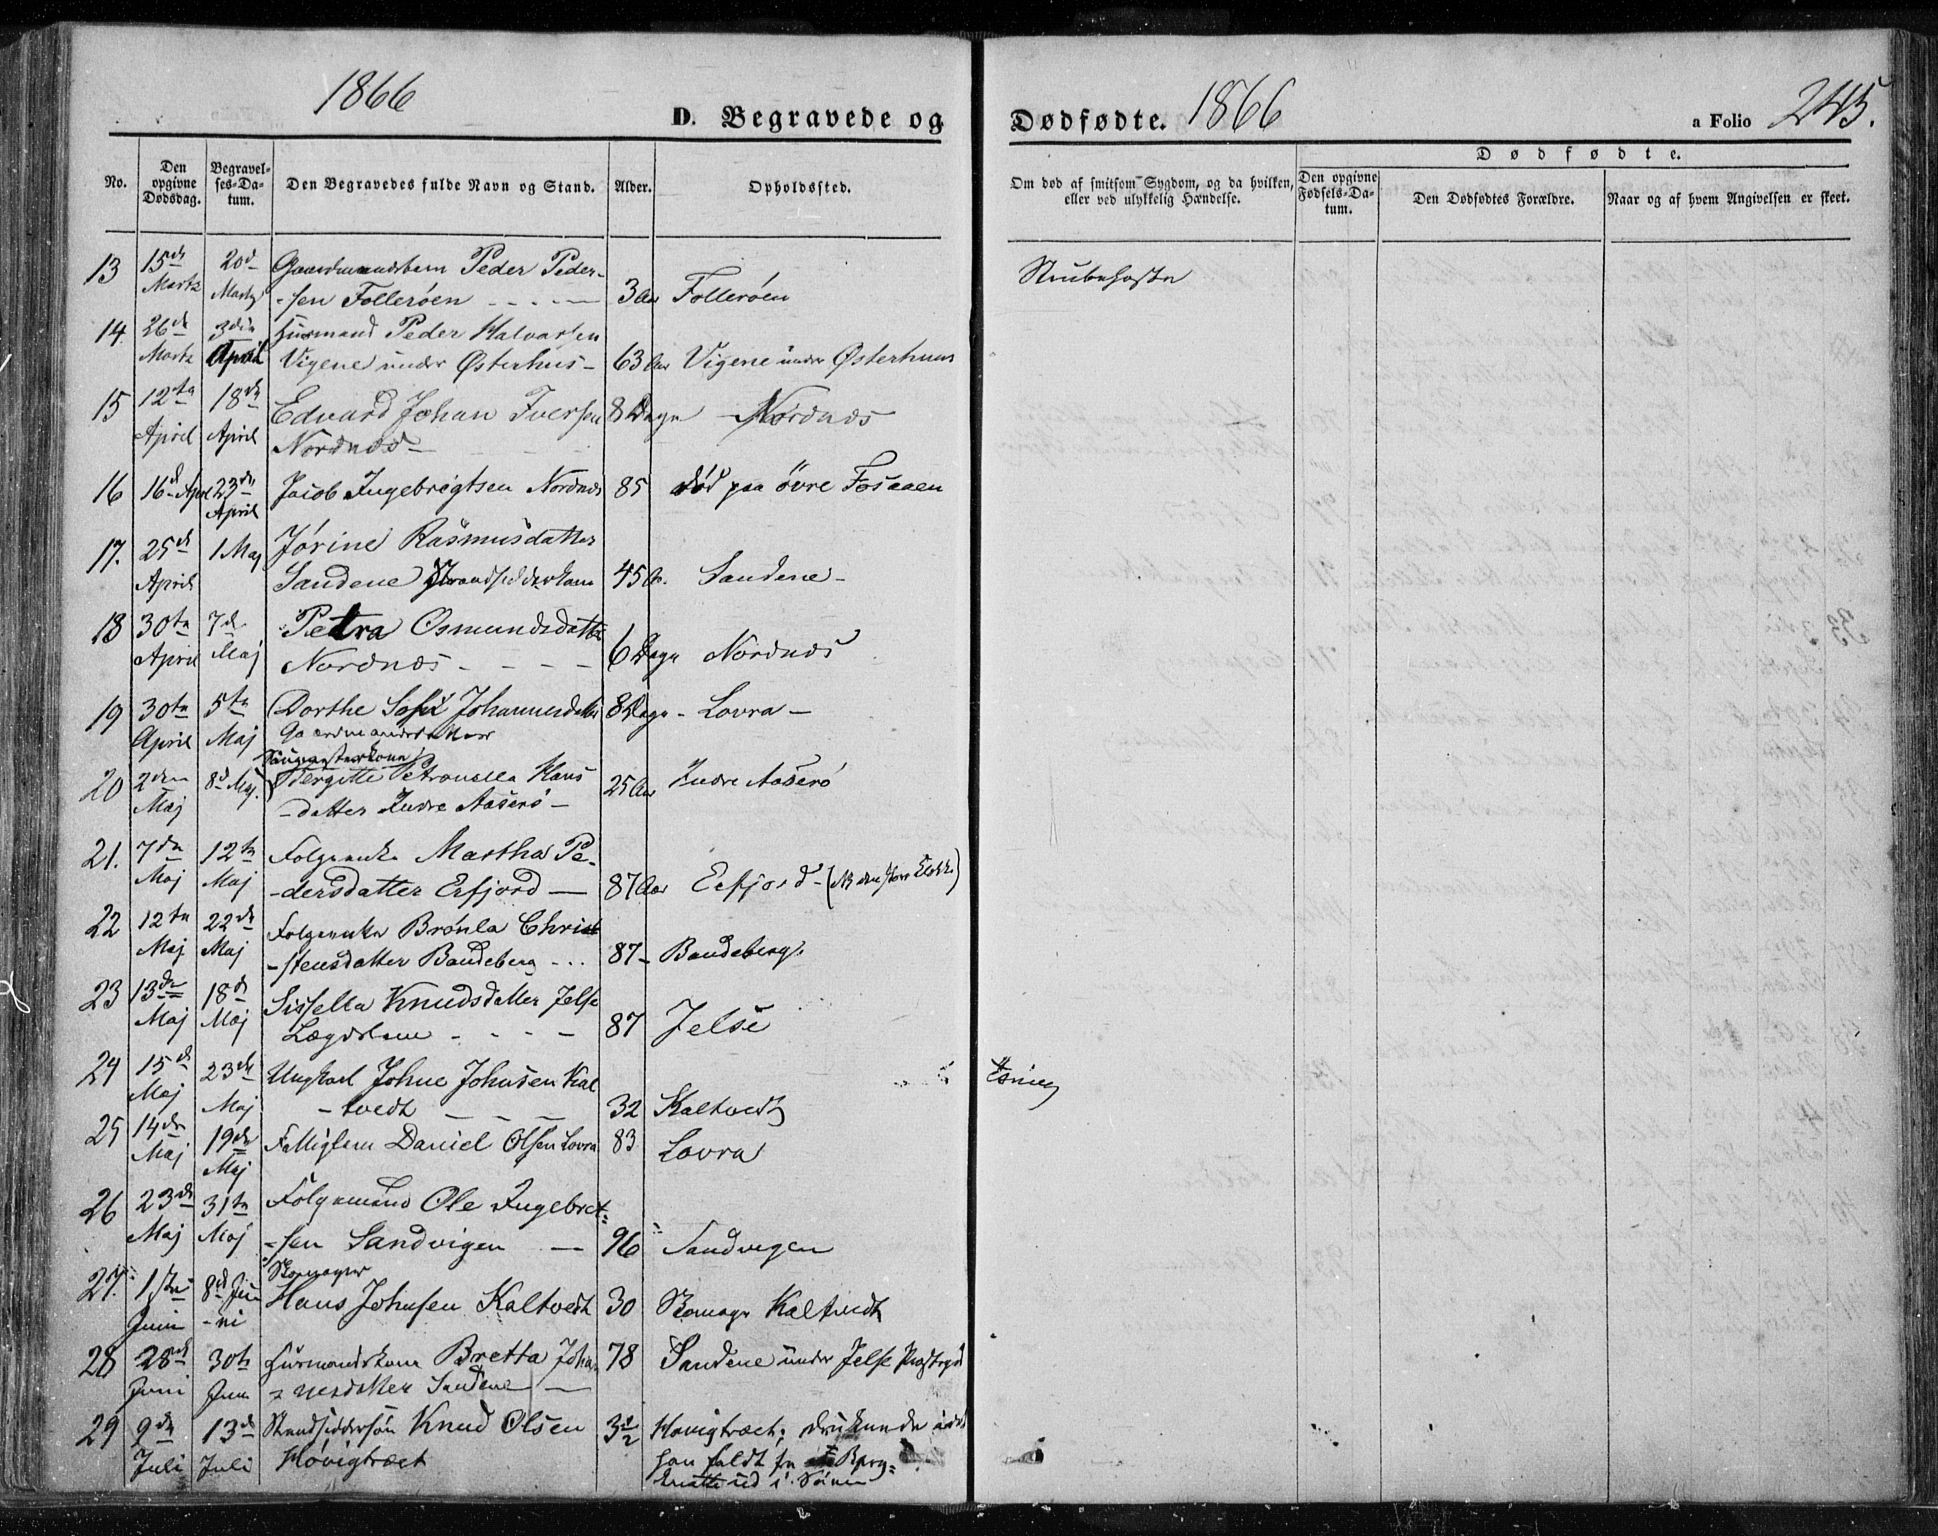 1866
D. Begravede og
Dødfødte. 1866
a Folio 245.
No.
Den opgivne Dødsdag.
Begravelses-Datum.
Den Begravedes fulde Navn og Stand.
Alder.
Opholdssted.
Om død af smitsom Sygdom, og da hvilken, eller ved ulykkelig Hændelse.
Dødfødte.
Den opgivne Fødsels-Datum.
Den Dødfødtes Forældre.
Naar og af hvem Angivelsen er skeet.
13 15de 20d Gaardmandsbarn Peder Peder-
Martz Martz -sen Follerøen - - - - 3 Aar Follerøen Strubehoste
14. 26de 3die Huusmand Peder Halvorsen
Martz April Vigene under Østerhus- 63 Aar Vigene under Østerhuus
15 12te 18de Edvard Johan Iversen 8 Dage - Nordnæs
April April Nordnæs -
16 16d April 23de Jacob Ingebrigtsen Nordnæs 85 død paa övre Fosaaen
April
17. 25de 1 Maj Jørine Rasmusdatter
April Sandene Strandsidderkone 45 A. Sandene-
18 30te 7de Petra Osmundsdatter
April Maj Nordnæs - - - - 6 Dage Nordnæs
19 30te 5te Dorthe Sofie Johannesdatter 8 Dage - Lovra -
April Maj Gaardmandsdatter
20 2den 8d Maj. Bergitte Petronella Hans 25 Aar Indre Aaserö
Maj -datter Indre Aaserö -
21. 7de 12te Folgeenke Martha Pe-
Maj Maj -dersdatter Erfjord - 87 Aar Erfjord -
22 12te 22de Folgeenke Brönla Christ
Maj Maj -stensdatter Bandeberg - . . 87 - Bandeberg.
23 13de 18d Sissella Knudsdatter Jelse
Maj Maj Lægdslem - - - - 87 Jelse
24 15de 23de Ungkarl Johne Johnsen Kal
Maj Maj -tvedt - - - 32 Kaltvedt
25 14de 19de Fattiglem Daniel Olsen Lovra 83 Lovra
Maj Maj
26 23de 31te Folgemand Ole Ingebret-
Maj Maj -sen Sandvigen - 96 Sandvigen
Skomager
27. 1ste 8d Juni Hans Johnsen Kaltvedt 30 Skomager Kaltvedt
Juni
28 28de 30te Huusmandskone Bretta Joha 78 Sandene under Jelse
Juni Juni nesdatter Sandene -
29 9de 13de Strandsiddersön Knud Olsen 3½ Hovigtræet; druknede
Juli Juli Hövigtræet han faldt fra Berg-
ud i Söen